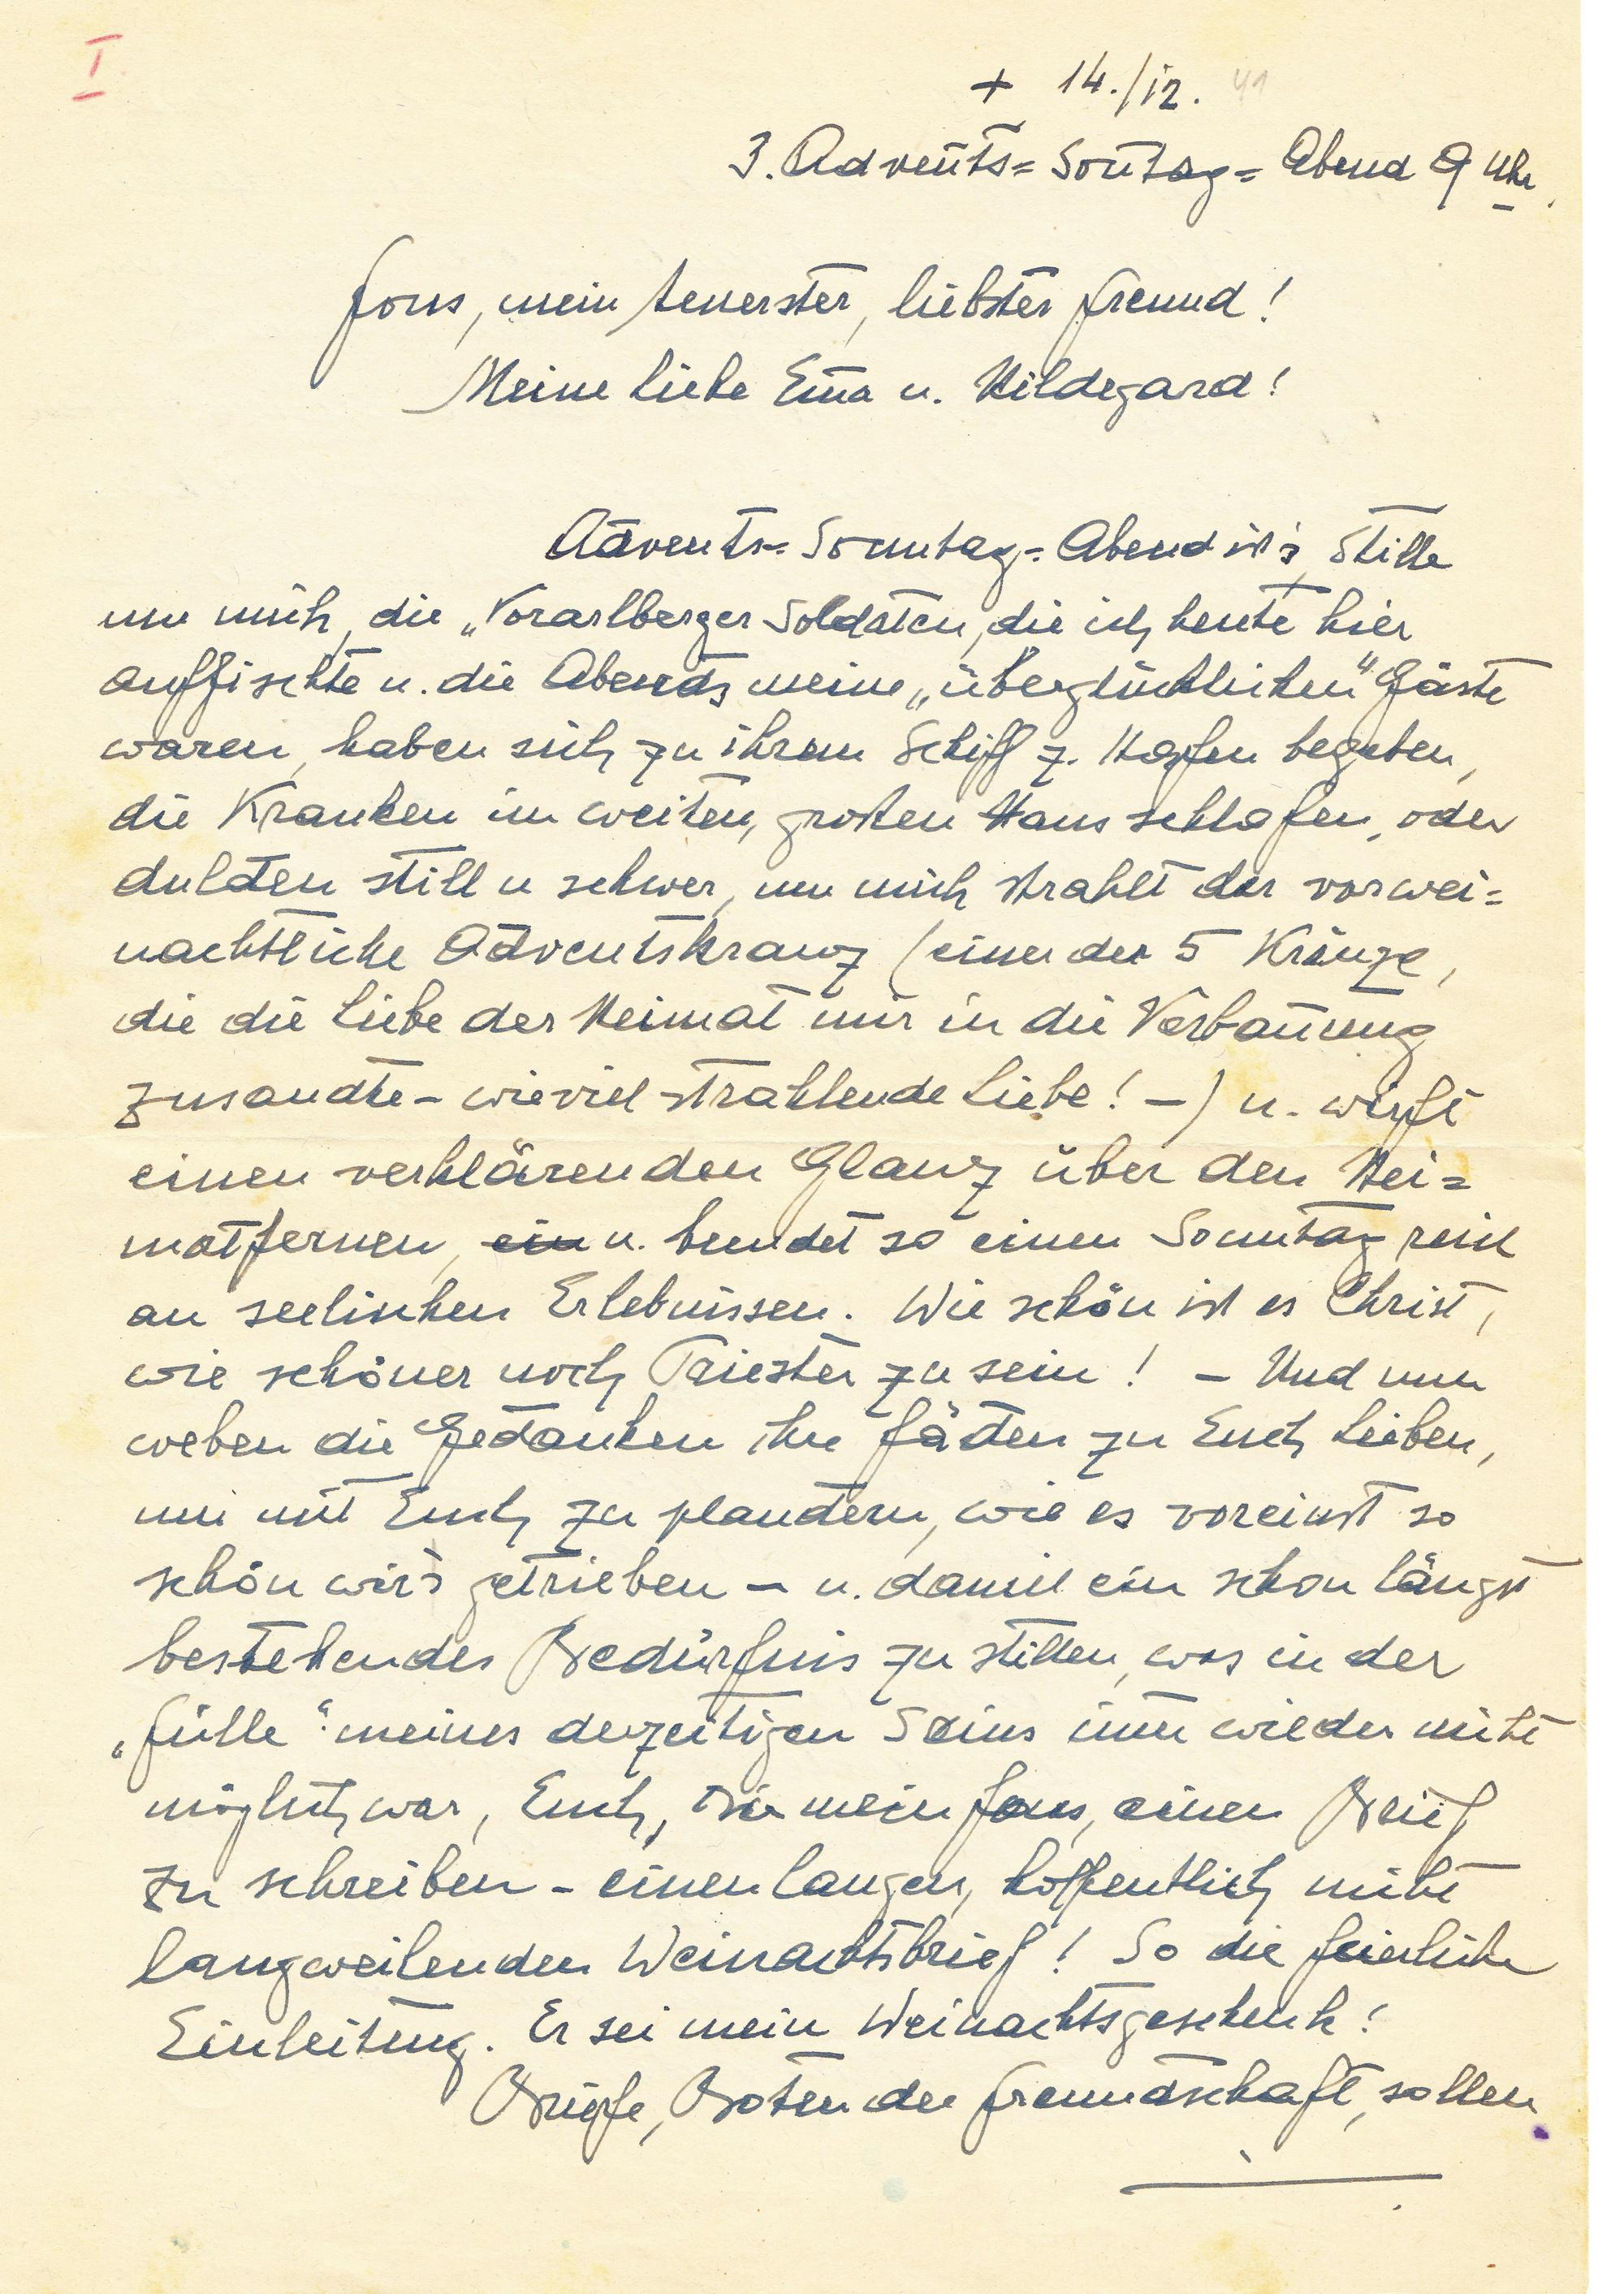 I
+ 14./12. 41
3. Advents= Sōntag= Abend 9 Uhr.
Fons, mein teuerster, liebster Freund!
Meine liebe Em̄a u. Hildegard!
Advents= Sonntag= Abend ist's, Stille
um mich, die „Vorarlberger Soldaten, die ich heute hier
auffischte u. die Abends meine „überglücklichen" Gäste
waren, haben sich zu ihrem Schiff z. Hafen begeben,
die Kranken im weiten, großen Haus schlafen, oder
dulden still u schwer, um mich strahlt der vorwei=
nachtliche Adventskranz (einer der 5 Kränze,
die die Liebe der Heimat mir in die Verban̄ung
zusandte – wieviel strahlende Liebe! –) u. wirft
einen verklärenden Glanz über den Hei=
matfernen, ein u. beendet so einen Sonntag reich
an seelischen Erlebnissen. Wie schön ist es Christ,
wie schöner noch Priester zu sein! – Und nun
weben die Gedanken ihre Fäden zu Euch Lieben,
um mit Euch zu plaudern, wie es voreinst so
schön wir's getrieben – u. damit ein schon längst
bestehendes Bedürfnis zu stillen, was in der
„Fülle" meines derzeitigen Seins im̄er wieder nicht
möglich war, Euch, Dir mein Fons, einen Brief
zu schreiben – einen langen, hoffentlich nicht
langweilenden Weinachtsbrief! So die feierliche
Einleitung. Er sei mein Weinachtsgeschenk!
Briefe, Boten der Freundschaft, sollen